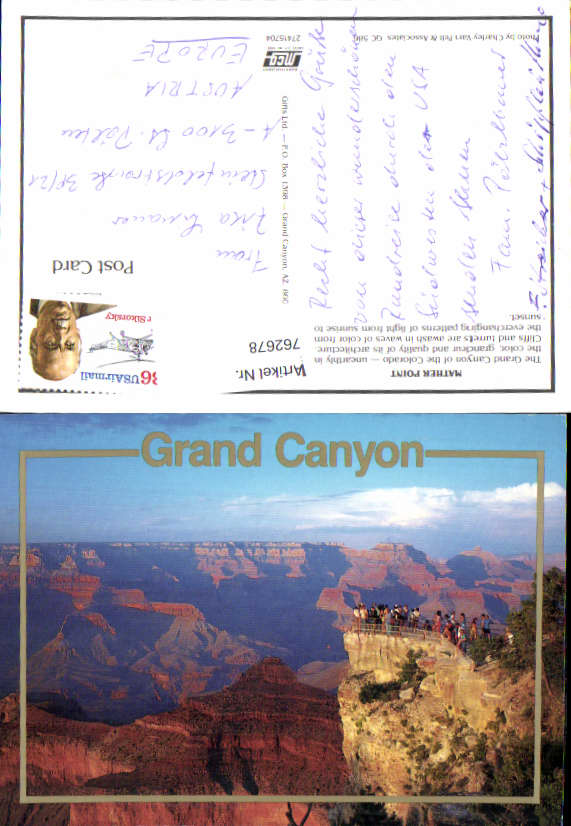 Grand Canyon
MATHER POINT
The Grand Canyon of the Colorado — unearthly in
the color, grandeur and quality of its architecture.
Cliffs and turrets are awash in waves of color from
the everchanging patterns of light from sunrise to
sunset.
Artikel Nr.
762678
36 USAirmail
r Sikorsky
Post Card
Recht herzliche Grüße
von dieser wunderschönen
Rundreise durch den
Südwesten der USA
senden Ihnen
Fam.
Frau
A-3100 St. Pölten
AUSTRIA
EUROPE
Gifts Ltd. — P.O. Box 1308 — Grand Canyon, AZ
27415704
Photo by Charley Van Pelt & Associates GC